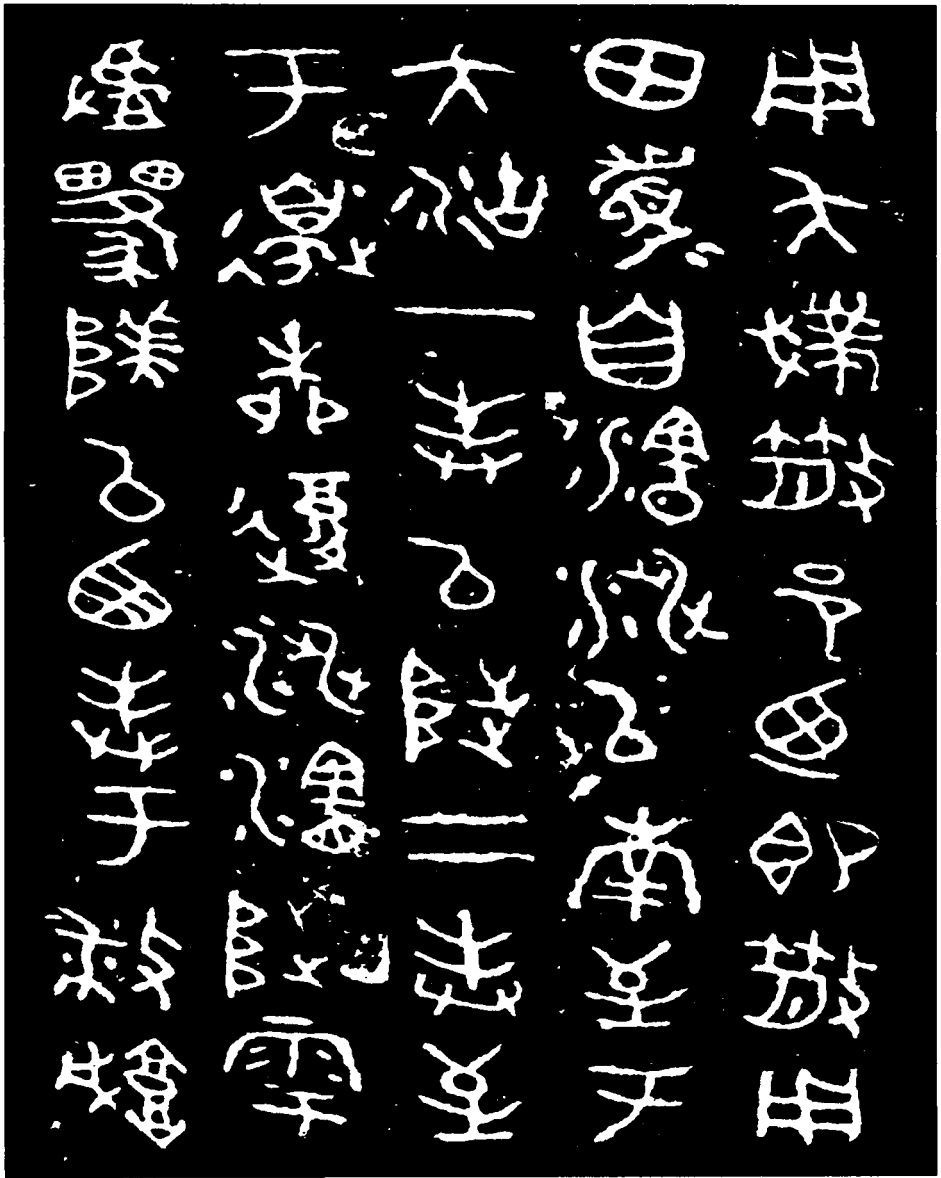 用夨撲散邑廼即散用
田眉自瀗涉以南至于
大沽一奉以陟二奉至
于邊柳復涉瀗陟雩
以西奉于敝城